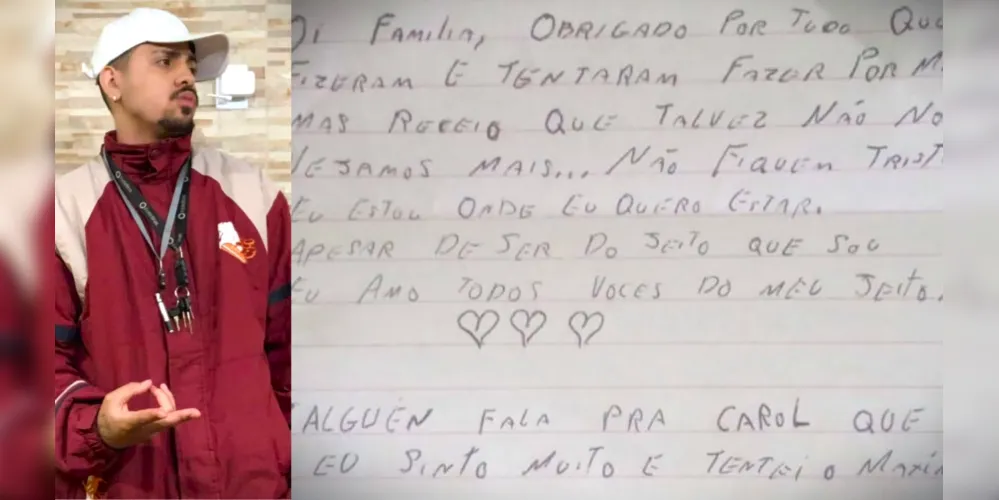 OI FAMILIA, OBRIGADO POR TUDO QUE
FIZERAM E TENTARAM FAZER POR M
MAS RECEIO QUE TALVEZ NÃO NO
VEJAMOS MAIS... NÃO FIQUEM TRIST
EU ESTOU ONDE EU QUERO ESTAR.
APESAR DE SER DO JEITO QUE SOU
EU AMO TODOS VOCES DO MEU JEITO.
ALGUÉN FALA PRA CAROL QUE
EU SINTO MUITO E TENTEI O MAXIM